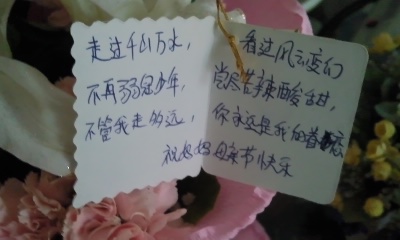 走过千山万水， 看过风云变幻
不再弱冠少年， 尝尽苦辣酸甜，
不管我走多远， 你永远是我的眷恋
祝妈妈母亲节快乐